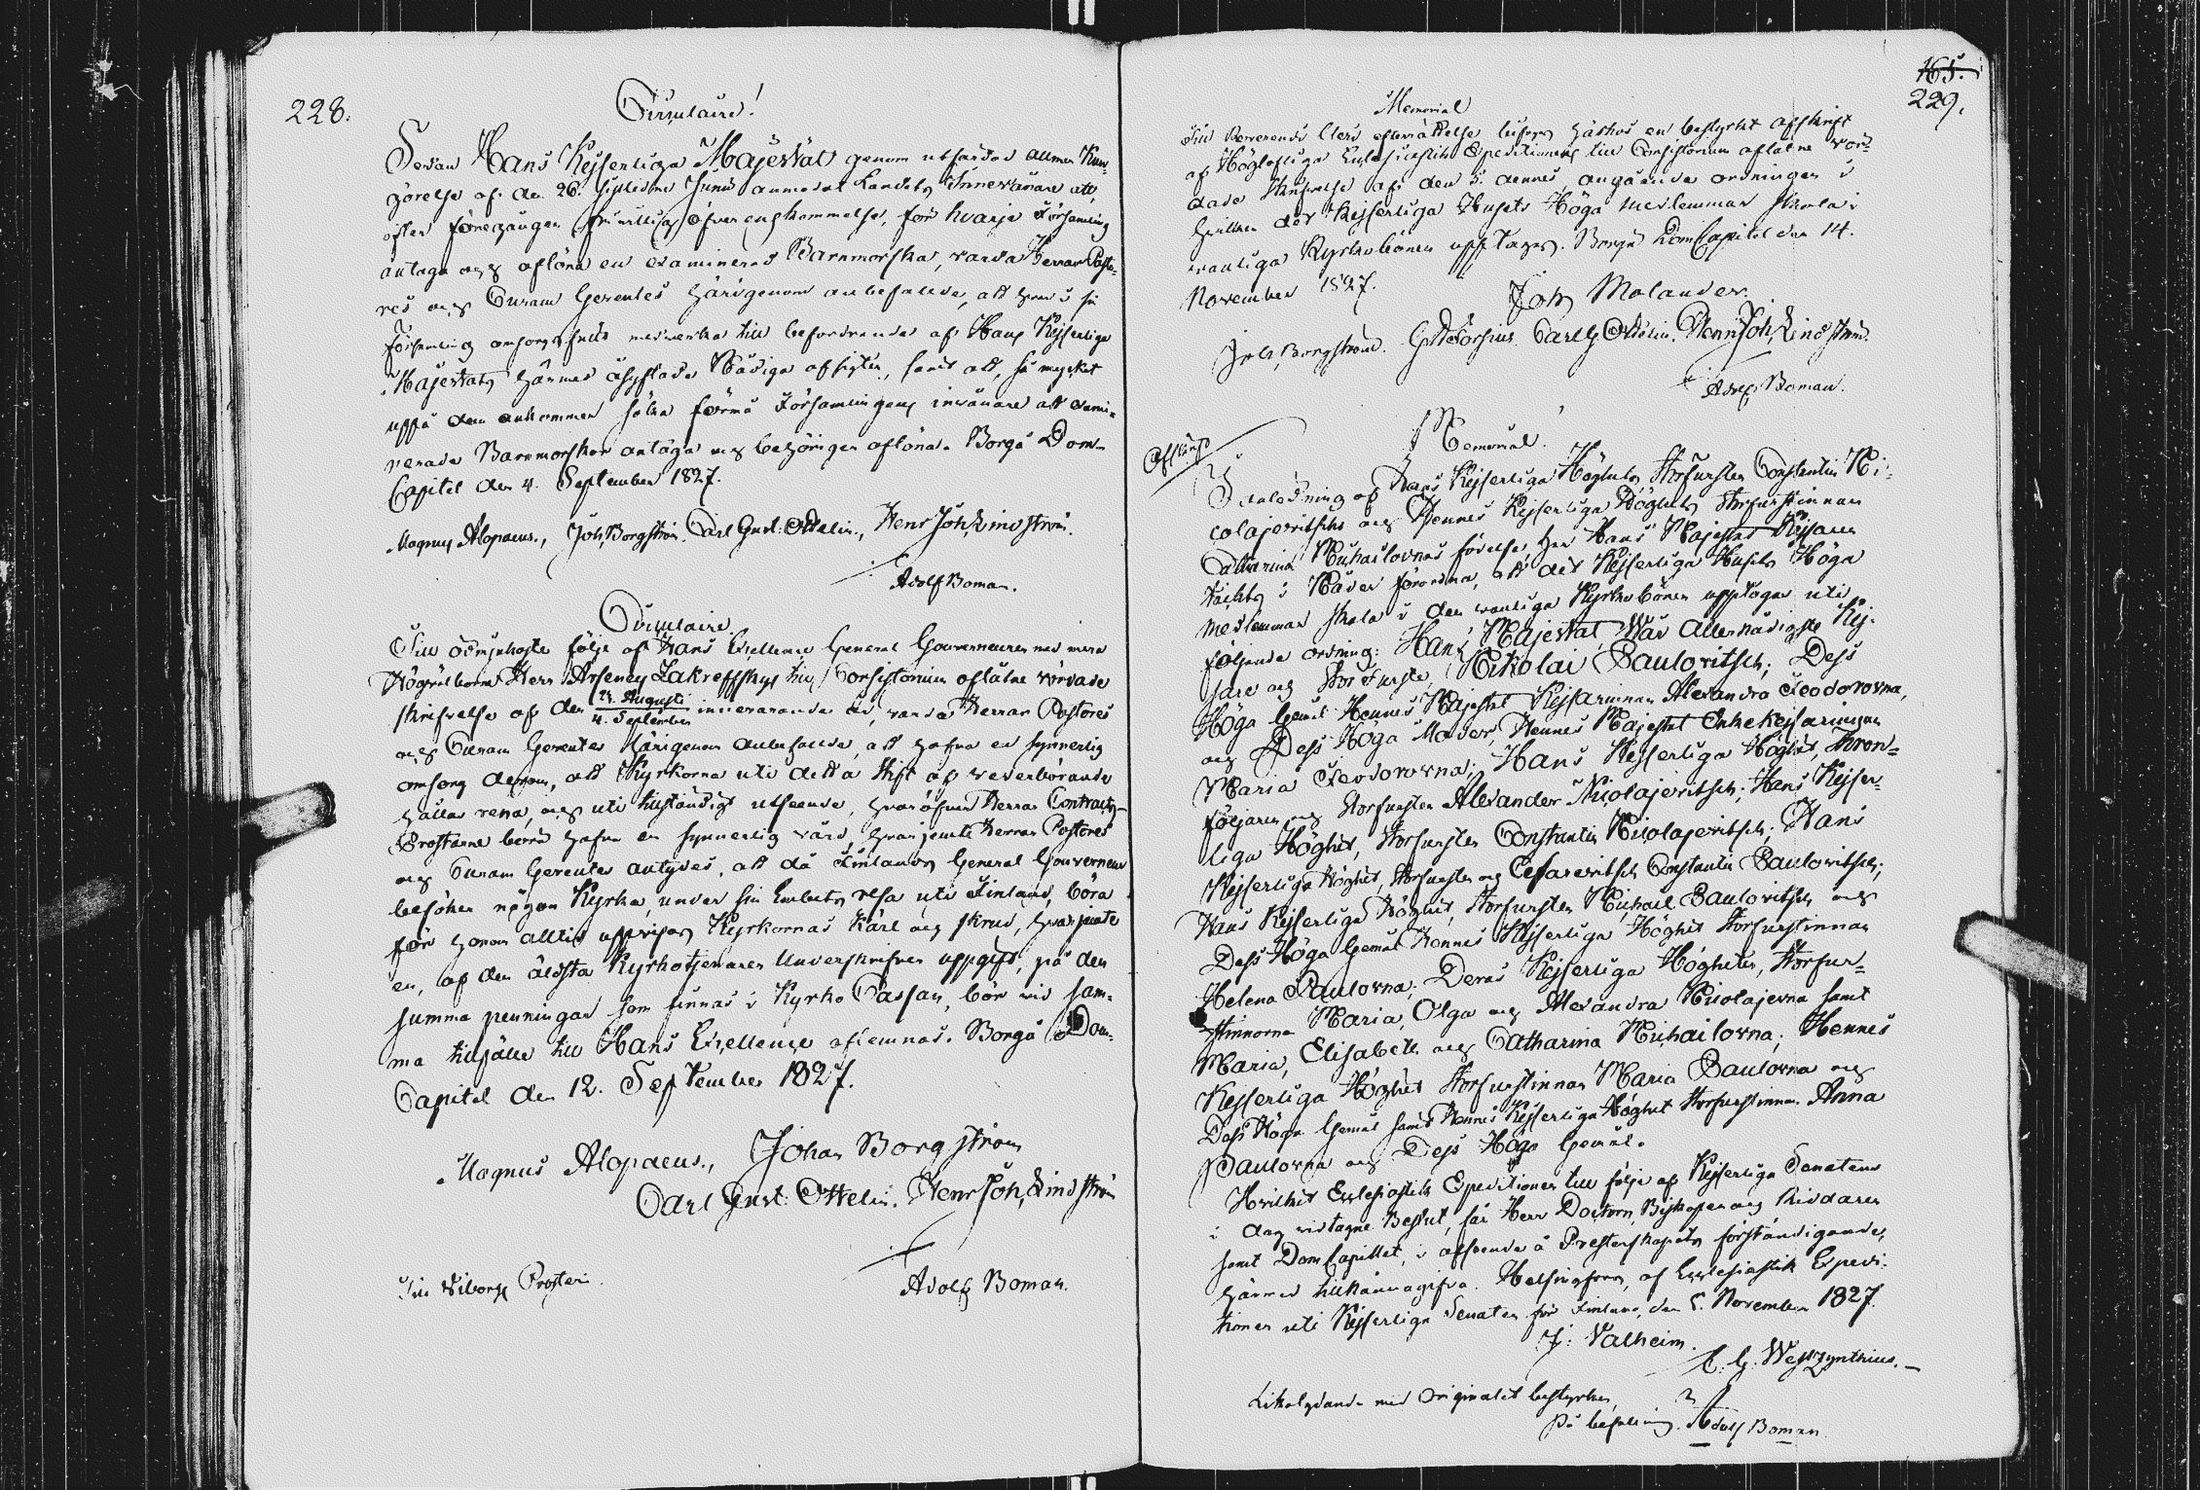 228.
Circulaire!
Sedan Hans Kejserliga Majestät genom utfärdad allmän Kun-
görelse af den 26. sistledne Junii anmodat Landets Innevånare att,
efter föregången frivillig öfverenskommelse, för hvarje Församling
antaga och aflöna en examinerad Barnmorska, varda Herrar Pasto-
res och Curam Gerentes härigenom anbefallde, att hvar i sin
Församling omsorgsfullt medverka till befordrande af Hans Kejserliga
Majestäts härmed åsyftade Nådiga afsigter, samt att, så mycket
uppå dem ankommer söka förmå Församlingens invånare att exami-
nerade Barnmorskor antaga och behörigen aflöna. Borgå Dom-
Capitel den 4. September 1827.
Magnus Alopaeus., Joh. Borgström. Carl Gust. Ottelin., Henr. Joh. Lindström.
Adolf Boman.
Circulaire
Till ödmjukaste följe af Hans Excellence General Gouverneuren med mera
Högvälborne Herr Arseney Zakreffskys till Consistorium aflåtne vördade
skrifvelse af den 23. Augusti / 4. September innevarande år, varda Herrar Pastores
och Curam Gerentes härigenom anbefallde, att hafva en synnerlig
omsorg derom, att Kyrkorna uti detta Stift af vederbörande
hållas rena, och uti anständigt utseende, hvaröfver Herrar Contracts-
Prostarne böra hafva en synnerlig vård, hvarjemte Herrar Pastores
och Curam Gerentes antydes, att då Finlands General Gouverneur
besöker någon Kyrka, under sin Embets resa uti Finland, böra
för honom alltid uppvisas Kyrkornas Kärl och skrud, hvarjemte
en, af den äldsta Kyrkotjenaren Underskrifven uppgift, på den
summa penningar som finnas i Kyrko Cassan, bör vid sam-
ma tillfälle till Hans Excellence aflemnas. Borgå Dom-
Capitel den 12. September 1827.
Magnus Alopaeus., Johan Borgström
Carl Gust. Ottelin. Henr. Joh. Lindström
Adolf Boman.
Till Viborgs Prosteri.
165.
229.
Memorial
Till Reverendi Cleri efterrättelse bifogas härhos en bestyrkt afskrift
af Högloflige Ecclesiastik Expeditionens till Consistorium aflåtne vör-
dade skrifvelse af den 5. dennes angående ordningen i
hvilken det Kejserliga Husets Höga medlemmar skola i
vanliga Kyrkobönen upptagas. Borgå DomCapitel den 14.
November 1827.
Joh. Molander.
Joh. Borgström. G. Alopaeus. Carl G. Ottelin. Henr. Joh. Lindström.
Adolf Boman.
Afskrift
Memorial.
I anledning af Hans Kejserliga Höghets Storfursten Constantin Ni-
colajevitschs och Hennes Kejserliga Höghets Storfurstinnan
Catharina Michailovnas födelse, har Hans Majestät Kejsaren
täckts i Nåder förordna, att det Kejserliga Husets Höga
medlemmar skola i den vanliga Kyrkobönen upptagas uti
följande ordning: Hans Majestät, Wår Allernådigste Kej-
sare och Storfurste, Nikolai Paulovitsch; Dess
Höga Gemål Hennes Majestät Kejsarinnan Alexandra Feodorovna,
och Dess Höga Moder, Hennes Majestät Enkekejsarinnan
Maria Feodorovna; Hans Kejserliga Höghet, Thron-
följaren och Storfursten Alexander Nicolajevitsch; Hans Kejser-
liga Höghet, Storfursten Constantin Nicolajevitsch; Hans
Kejserliga Höghet, Storfursten och Cesarevitsch Constantin Paulovitsch;
Hans Kejserliga Höghet, Storfursten Michail Paulovitsch och
Dess Höga Gemål Hennes Kejserliga Höghet Storfurstinnan
Helena Paulovna; Deras Kejserliga Högheter, Storfur-
stinnorna Maria, Olga och Alexandra Nicolajevna samt
Maria, Elisabeth och Catharina Michailovna; Hennes
Kejserliga Höghet Storfurstinnan Maria Paulovna och
Dess Höga Gemål samt Hennes Kejserliga Höghet Storfurstinnan Anna
Paulovna och Dess Höga Gemål.
Hvilket Ecclesiastik Expeditionen till följe af Kejserliga Senatens
i dag vidtagne Beslut, får Herr Doctorn, Biskopen och Riddaren
samt DomCapitlet, i afseende å Presterskapets förständigande,
härmed tillkännagifva. Helsingfors, af Ecclesiastik Expedi-
tionen uti Kejserliga Senaten för Finland, den 5. November 1827.
J. Valheim.
C. G. Westzynthius.
Likalydande med Originalet bestyrker,
På befallning. Adolf Boman